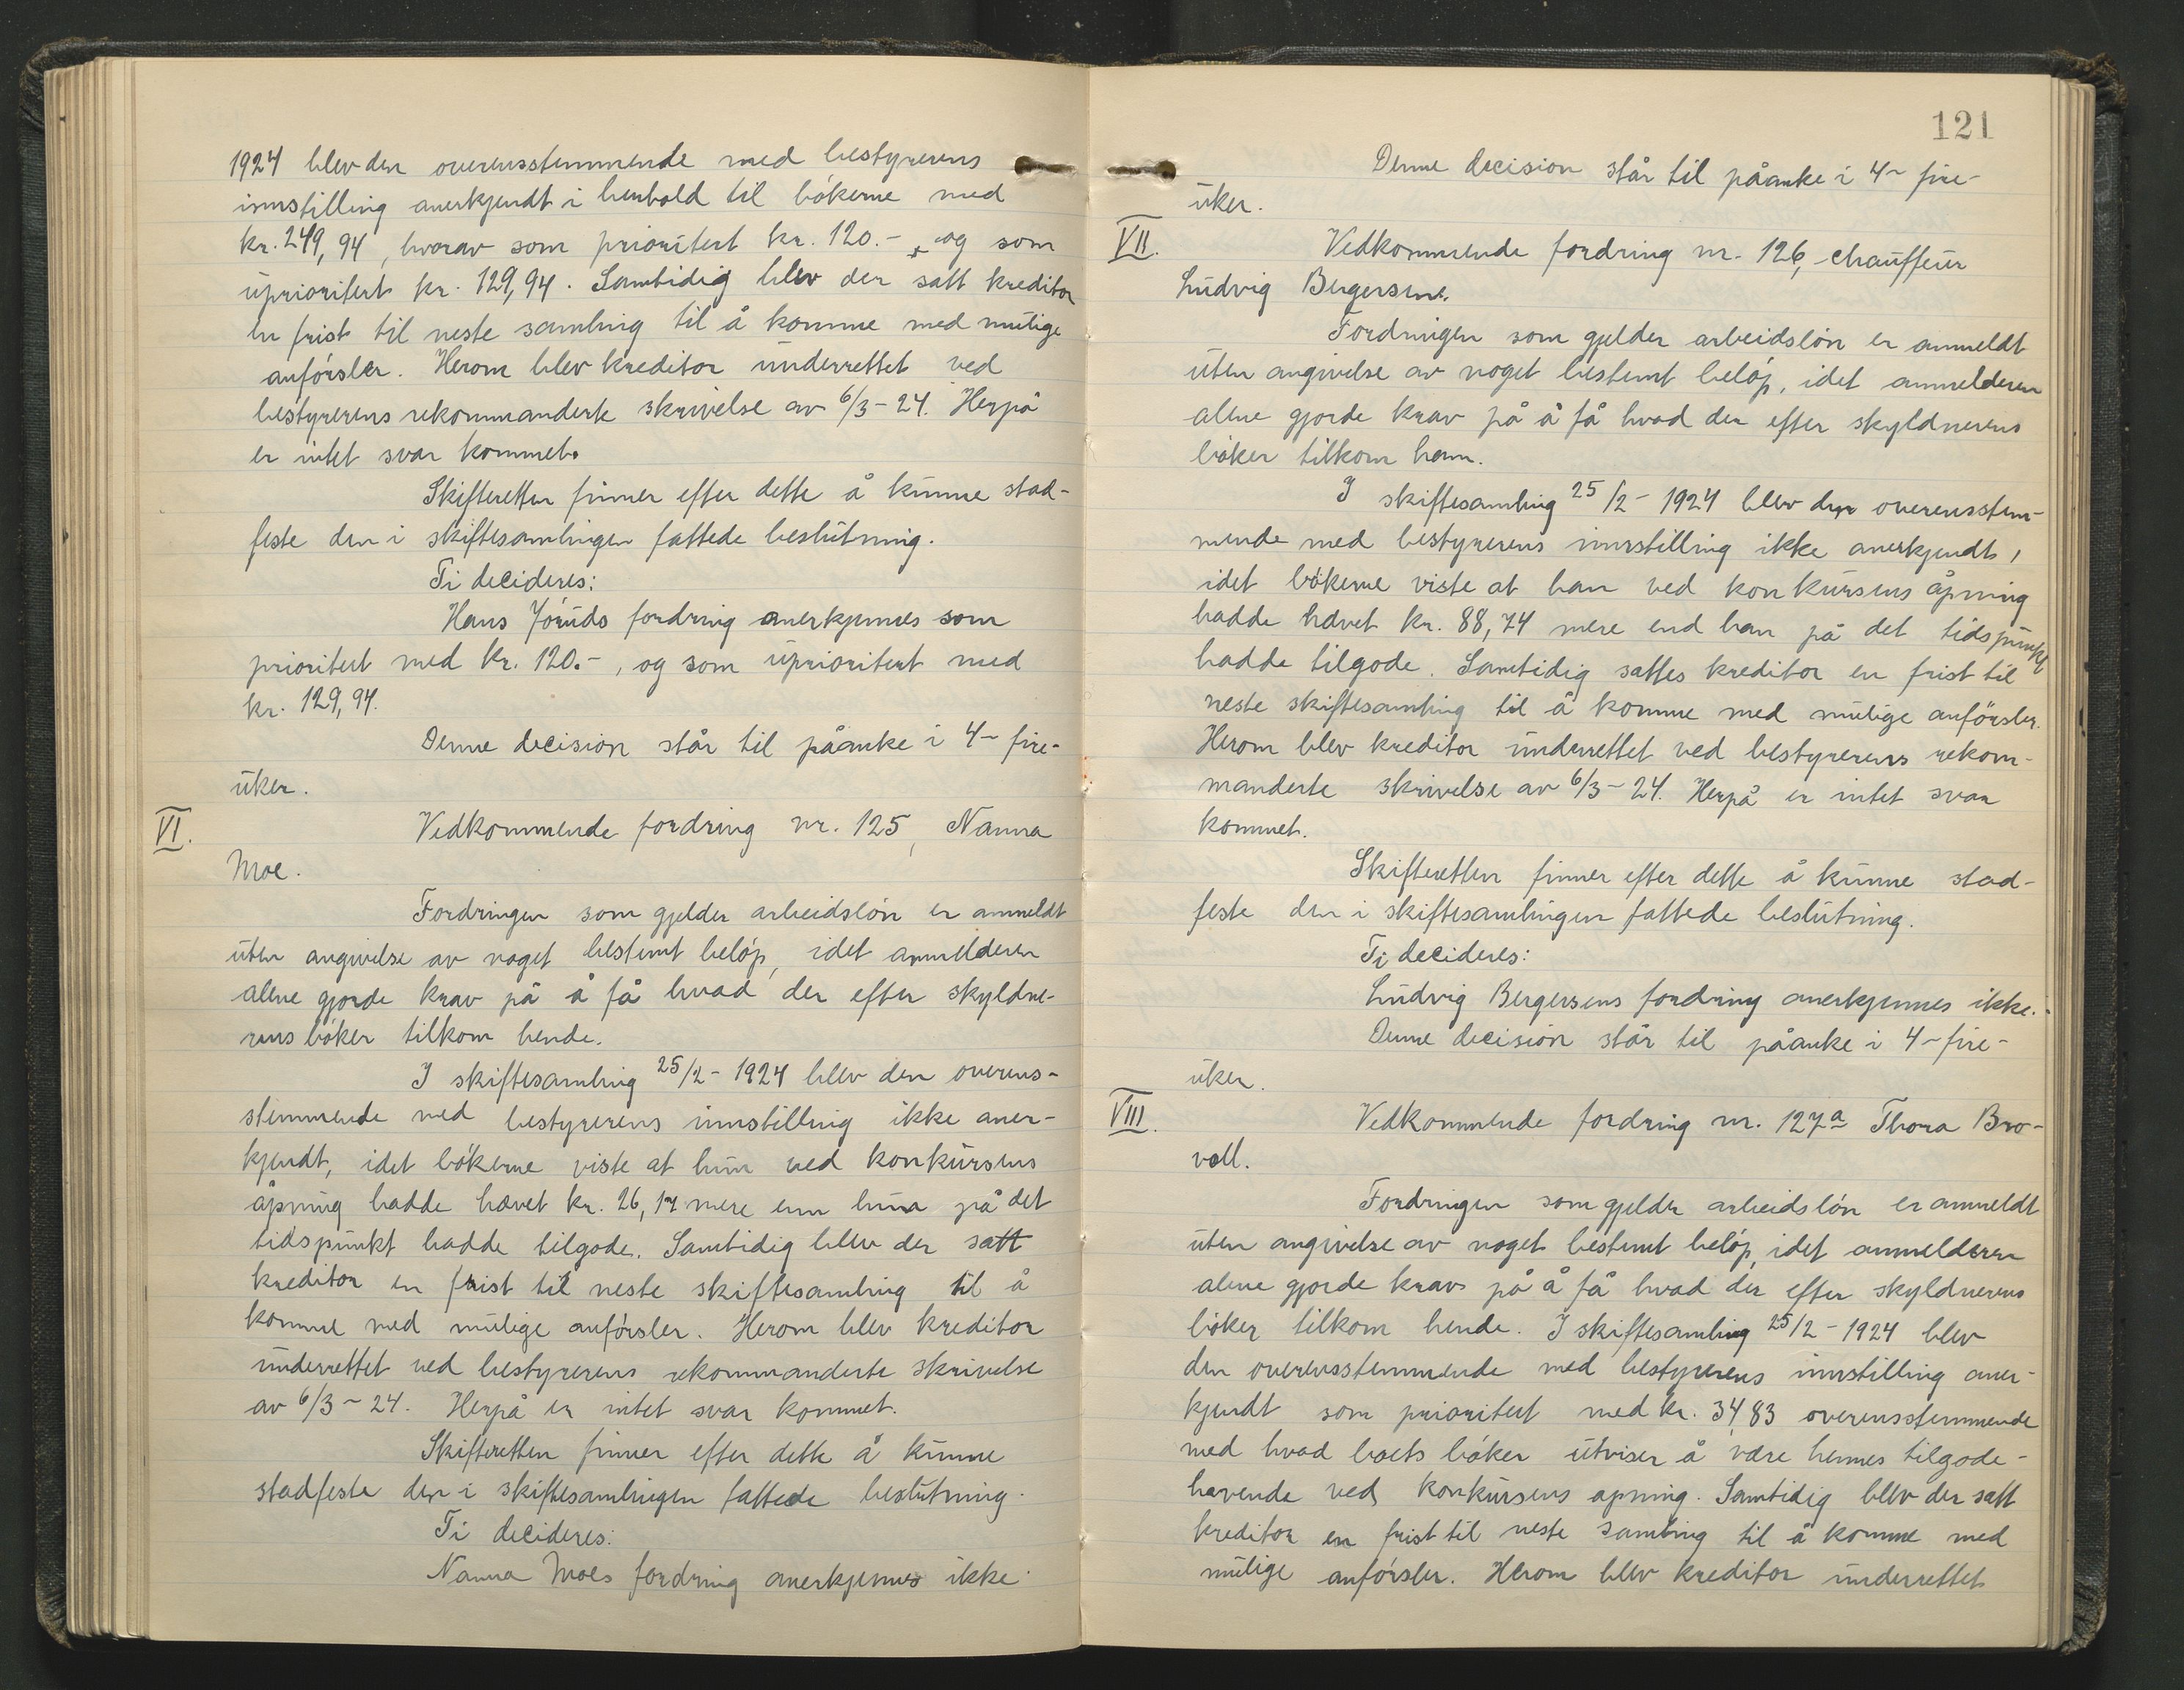 1924 blev den overensstemmende med bestyrerens
innstilling anerkjendt i henhold til bökerne med
kr. 249,94, hvorav som prioritert kr. 120.- , og som
uprioritert kr. 129,94. Samtidig blev der satt kreditor
en frist til neste samling til å komme med mulige
anförsler. Herom blev kreditor underrettet ved
bestyrerens rekommanderte skrivelse av 6/3-24. Herpå
er intet svar kommet.
Skifteretten finner efter dette å kunne stad-
feste den i skiftesamlingen fattede beslutning.
Ti decideres:
Hans Jöruds fordring anerkjennes som
prioritert med kr. 120.-, og som uprioritert med
kr. 129,94.
Denne decision står til påanke i 4- fire-
uker.
VI.
Vedkommende fordring nr. 125, Nanna
Moe.
Fordringen som gjelder arbeidslön er anmeldt
uten angivelse av noget bestemt belöp, idet anmelderen
alene gjorde krav på å få hvad der efter skyldne-
rens böker tilkom hende.
I skiftesamling 25/2- 1924 blev den overens-
stemmende med bestyrerens innstilling ikke aner-
kjendt, idet bökerne viste at hun ved konkursens
åpning hadde hævet kr. 26,17 mere enn hun på det
tidspunkt hadde tilgode. Samtidig blev der satt
kreditor en frist til neste skiftesamling til å
komme med mulige anförsler. Herom blev kreditor
underrettet ved bestyrerens rekommanderte skrivelse
av 6/3-24. Herpå er intet svar kommet.
Skifteretten finner efter dette å kunne
stadfeste den i skiftesamlingen fattede beslutning.
Ti decideres:
Nanna Moes fordring anerkjennes ikke.
121
Denne decision står til påanke i 4- fire-
uker.
VII.
Vedkommende fordring nr. 126, chauffeur
Ludvig Bergersen.
Fordringen som gjelder arbeidslön er anmeldt
uten angivelse av noget bestemt belöp, idet anmelderen
alene gjorde krav på å få hvad der efter skyldnerens
böker tilkom ham.
I skiftesamling 25/2- 1924 blev den overensstem-
mende med bestyrerens innstilling ikke anerkjendt,
idet bökerne viste at han ved konkursens åpning
hadde hævet kr. 88,74 mere end han på det tidspunkt
hadde tilgode. Samtidig sattes kreditor en frist til
neste skiftesamling til å komme med mulige anförsler.
Herom blev kreditor underrettet ved bestyrerens rekom-
manderte skrivelse av 6/3-24. Herpå er intet svar
kommet.
Skifteretten finner efter dette å kunne stad-
feste den i skiftesamlingen fattede beslutning.
Ti decideres:
Ludvig Bergersens fordring anerkjennes ikke.
Denne decision står til påanke i 4- fire-
uker.
VIII.
Vedkommende fordring nr. 127a Thora Bro-
voll.
Fordringen som gjelder arbeidslön er anmeldt
uten angivelse av noget bestemt belöp, idet anmelderen
alene gjorde krav på å få hvad der efter skyldnerens
böker tilkom hende. I skiftesamling 25/2-1924 blev
den overensstemmende med bestyrerens innstilling aner-
kjendt som prioritert med kr. 34,83 overensstemmende
med hvad boets böker utviser å være hennes tilgode-
havende ved konkursens apning. Samtidig blev der satt
kreditor en frist til neste samling til å komme med
mulige anförsler. Herom blev kreditor underrettet